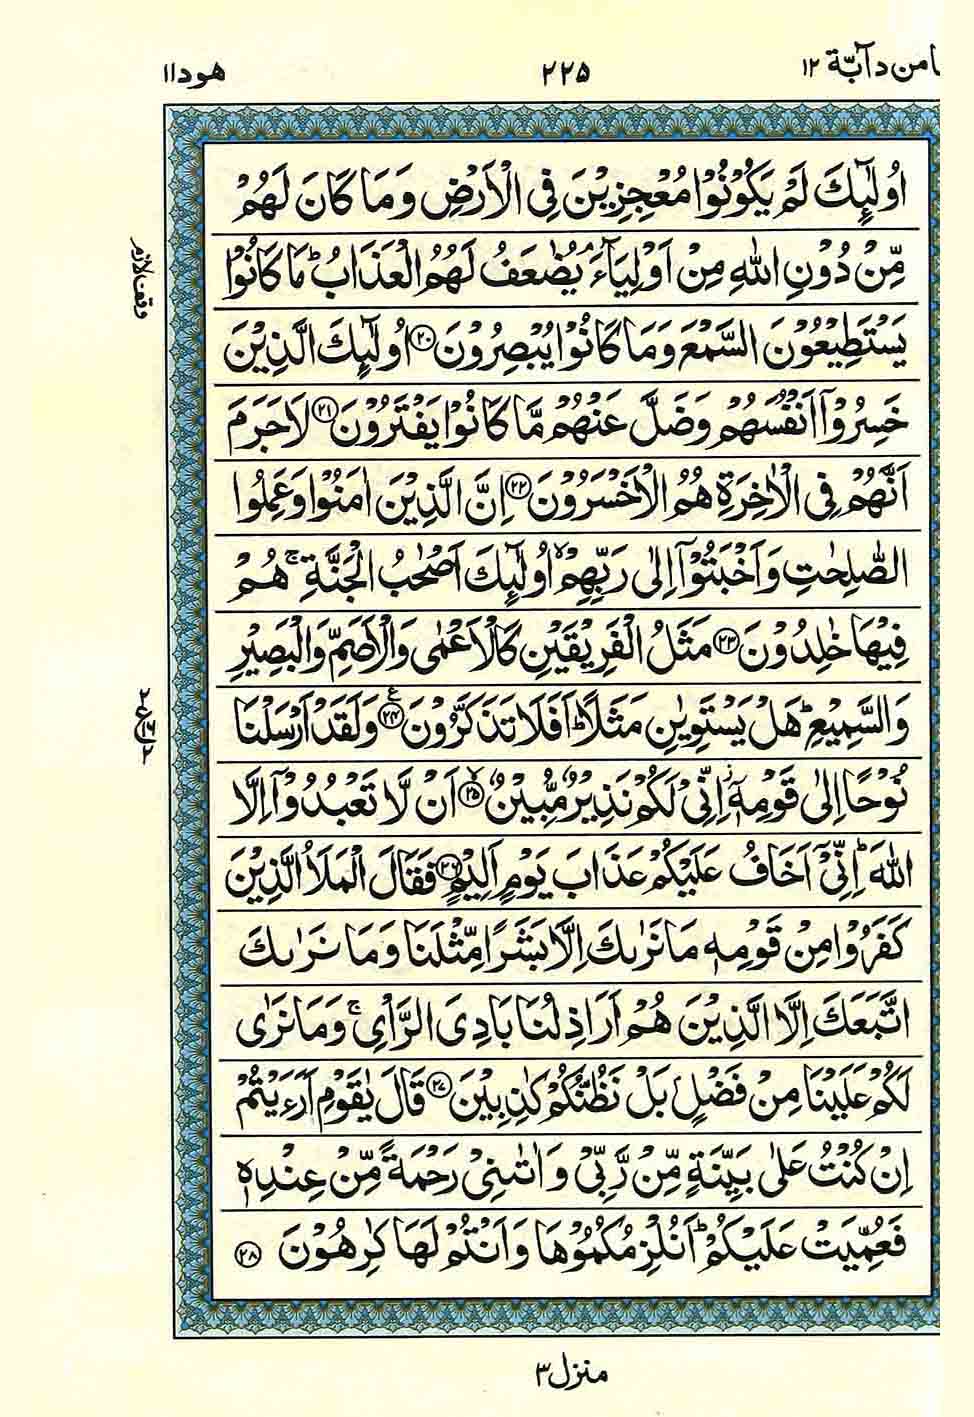 ومامن دآبّة ١٢
٢٢٥
هود ١١
اُولٰٓئِكَ لَمْ يَكُوْنُوْا مُعْجِزِيْنَ فِي الْاَرْضِ وَمَا كَانَ لَهُمْ
مِّنْ دُوْنِ اللّٰهِ مِنْ اَوْلِيَآءَ ۘ يُضٰعَفُ لَهُمُ الْعَذَابُ ؕ مَا كَانُوْا
وقف لازم
يَسْتَطِيْعُوْنَ السَّمْعَ وَمَا كَانُوْا يُبْصِرُوْنَ ﴿٢٠﴾ اُولٰٓئِكَ الَّذِيْنَ
خَسِرُوْۤا اَنْفُسَهُمْ وَضَلَّ عَنْهُمْ مَّا كَانُوْا يَفْتَرُوْنَ ﴿٢١﴾ لَا جَرَمَ
اَنَّهُمْ فِي الْاٰخِرَةِ هُمُ الْاَخْسَرُوْنَ ﴿٢٢﴾ اِنَّ الَّذِيْنَ اٰمَنُوْا وَعَمِلُوا
الصّٰلِحٰتِ وَاَخْبَتُوْۤا اِلٰى رَبِّهِمْ ۙ اُولٰٓئِكَ اَصْحٰبُ الْجَنَّةِ ۚ هُمْ
فِيْهَا خٰلِدُوْنَ ﴿٢٣﴾ مَثَلُ الْفَرِيْقَيْنِ كَالْاَعْمٰى وَالْاَصَمِّ وَالْبَصِيْرِ
وَالسَّمِيْعِ ؕ هَلْ يَسْتَوِيٰنِ مَثَلًا ؕ اَفَلَا تَذَكَّرُوْنَ ﴿٢٤﴾ وَلَقَدْ اَرْسَلْنَا
نُوْحًا اِلٰى قَوْمِهٖۤ ؗ اِنِّيْ لَكُمْ نَذِيْرٌ مُّبِيْنٌ ﴿٢٥﴾ اَنْ لَّا تَعْبُدُوْۤا اِلَّا
اللّٰهَ ؕ اِنِّيْۤ اَخَافُ عَلَيْكُمْ عَذَابَ يَوْمٍ اَلِيْمٍ ﴿٢٦﴾ فَقَالَ الْمَلَاُ الَّذِيْنَ
كَفَرُوْا مِنْ قَوْمِهٖ مَا نَرٰىكَ اِلَّا بَشَرًا مِّثْلَنَا وَمَا نَرٰىكَ
اتَّبَعَكَ اِلَّا الَّذِيْنَ هُمْ اَرَاذِلُنَا بَادِيَ الرَّاْيِ ۚ وَمَا نَرٰى
لَكُمْ عَلَيْنَا مِنْ فَضْلٍ بَلْ نَظُنُّكُمْ كٰذِبِيْنَ ﴿٢٧﴾ قَالَ يٰقَوْمِ اَرَءَيْتُمْ
اِنْ كُنْتُ عَلٰى بَيِّنَةٍ مِّنْ رَّبِّيْ وَاٰتٰىنِيْ رَحْمَةً مِّنْ عِنْدِهٖ
فَعُمِّيَتْ عَلَيْكُمْ ؕ اَنُلْزِمُكُمُوْهَا وَاَنْتُمْ لَهَا كٰرِهُوْنَ ﴿٢٨﴾
منزل ٣